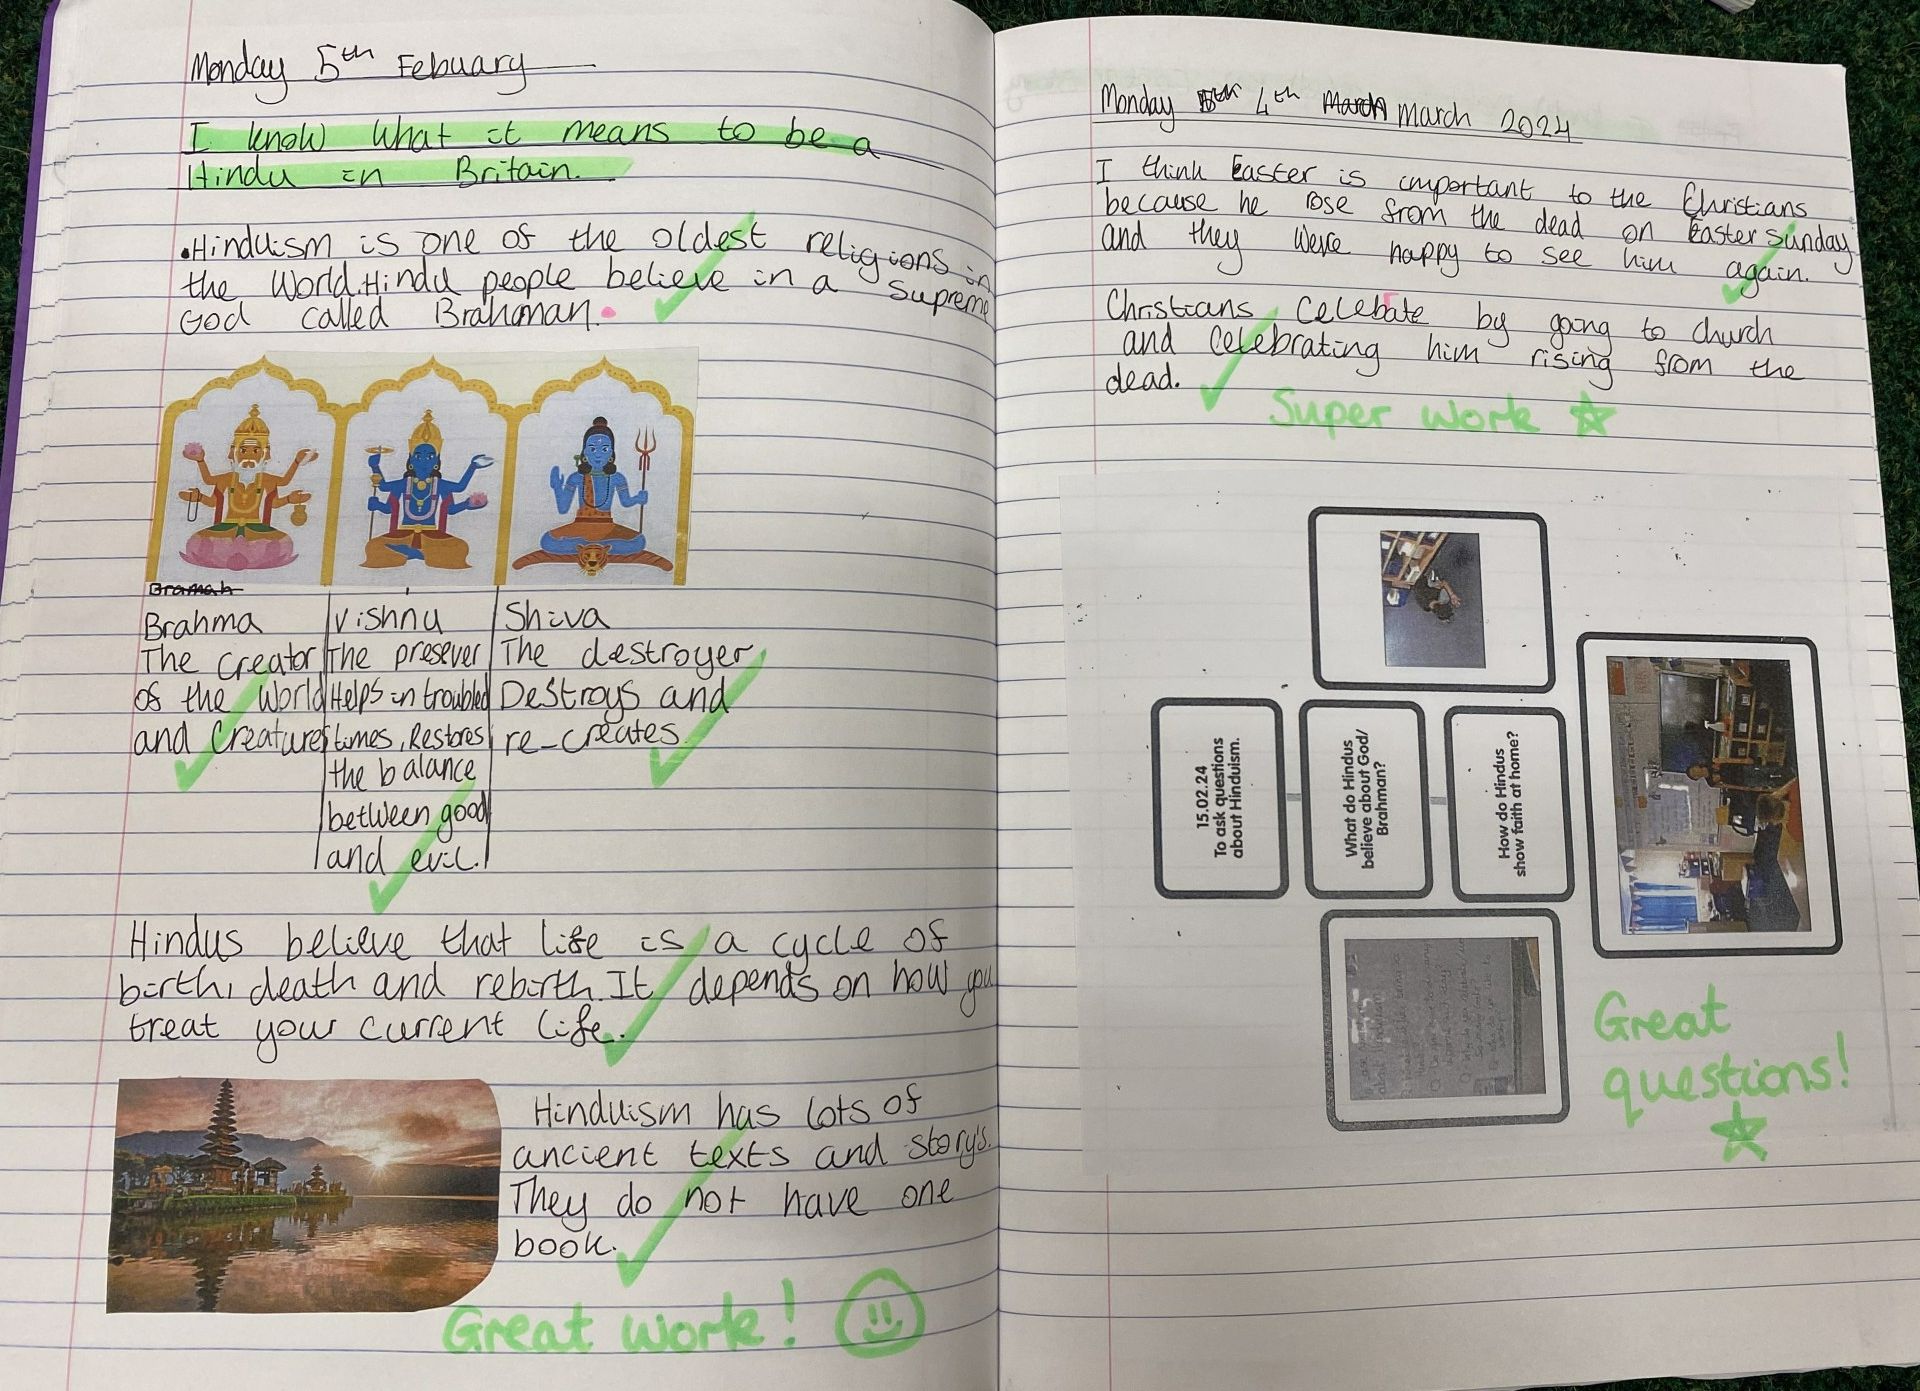 Monday 5th Febuary
I know what it means to be a
Hindu in Britain.
•Hinduism is one of the oldest religions in
the World.Hindu people believe in a supreme
God called Brahman.
Bramah
Brahma
The creator
of the world
and creatures
Vishnu
The presever
Helps in troubled
times. Restores
the balance
between good
and evil.
Shiva
The destroyer
Destroys and
re-creates.
Hindus believe that life is a cycle of
birth, death and rebirth. It depends on how you
treat your current life.
Hinduism has lots of
ancient texts and story's.
They do not have one
book.
Great work!
Monday 5th 4th March March 2024
I think Easter is important to the Christians
because he rose from the dead on Easter Sunday
and they were happy to see him again.
Christians Celebrate by going to church
and celebrating him rising from the
dead.
Super work
15.02.24
To ask questions
about Hinduism.
What do Hindus
believe about God/
Brahman?
How do Hindus
show faith at home?
Great
questions!